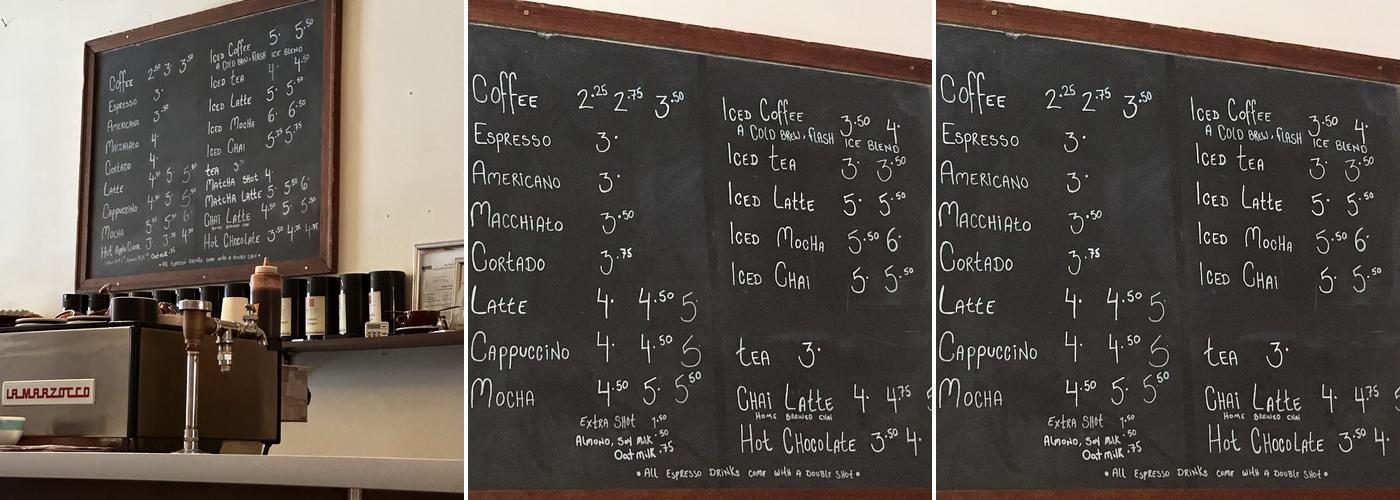 Coffee 2.50 3. 3.50
Espresso 3.
Americano 3.50
Macchiato 4.
Cortado 4.
Latte 4.50 5. 5.50
Cappuccino 4.50 5. 5.50
Mocha 5.25 5.50 6.
Hot Apple Cider 3. 3.75 4.50
Oat milk .75
Iced Coffee 5. 5.50
A Cold Brew, flash ice blend
Iced tea 4. 4.50
Iced Latte 5. 5.50
Iced Mocha 6. 6.50
Iced Chai 5.25 5.75
tea
Matcha Shot 4.
Matcha Latte 5. 5.50 6.
Chai Latte 4.50 5. 5.50
Home Brewed Chai
Hot Chocolate 3.50 4.25 4.75
• All Espresso Drinks come with a double shot •
LA MARZOCCO
Coffee 2.25 2.75 3.50
Espresso 3.
Americano 3.
Macchiato 3.50
Cortado 3.75
Latte 4. 4.50 5.
Cappuccino 4. 4.50 5
Mocha 4.50 5. 5.50
Extra Shot 1.50
Almond, Soy milk .50
Oat milk .75
Iced Coffee 3.50 4.
A Cold Brew, flash ice blend
Iced tea 3. 3.50
Iced Latte 5. 5.50
Iced Mocha 5.50 6.
Iced Chai 5. 5.50
tea 3.
Chai Latte 4. 4.75
Home Brewed Chai
Hot Chocolate 3.50 4.
• All Espresso Drinks come with a double shot •
Coffee 2.25 2.75 3.50
Espresso 3.
Americano 3.
Macchiato 3.50
Cortado 3.75
Latte 4. 4.50 5
Cappuccino 4. 4.50 5
Mocha 4.50 5. 5.50
Extra Shot 1.50
Almond, Soy milk .50
Oat milk .75
Iced Coffee 3.50 4.
A Cold Brew, flash ice blend
Iced tea 3. 3.50
Iced Latte 5. 5.50
Iced Mocha 5.50 6.
Iced Chai 5. 5.50
tea 3.
Chai Latte 4. 4.75
Home Brewed Chai
Hot Chocolate 3.50 4.
• All Espresso Drinks come with a double shot •